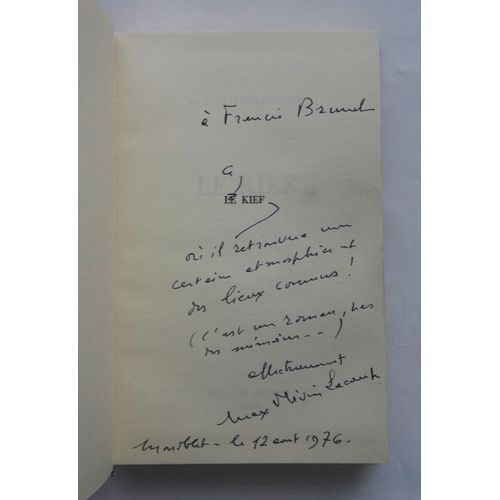 à Francis Brunel
LE KIEF
où il retrouvera une
certaine atmosphère et
des lieux connus !
(c'est un roman, pas
des mémoires--)
affectueusement
Max Olivier Lacamp
le 12 août 1976.